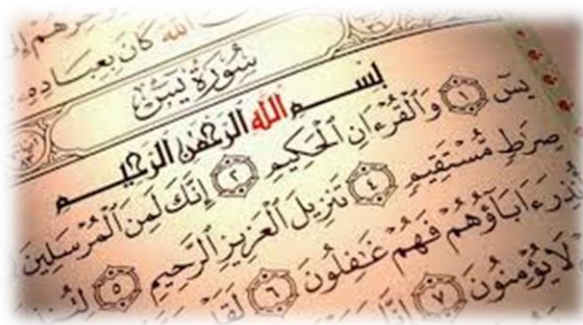 الله كَانَ بِعِبَادِهِ
سُورَةُ يسٓ
بِسْمِ اللَّهِ الرَّحْمَٰنِ الرَّحِيمِ
يسٓ ١ وَالْقُرْءَانِ الْحَكِيمِ ٢ إِنَّكَ لَمِنَ الْمُرْسَلِينَ
صِرَٰطٍ مُّسْتَقِيمٍ ٤ تَنزِيلَ الْعَزِيزِ الرَّحِيمِ ٥
ءَابَآؤُهُمْ فَهُمْ غَٰفِلُونَ ٦ لَقَدْ
لَا يُؤْمِنُونَ ٧ إِنَّا